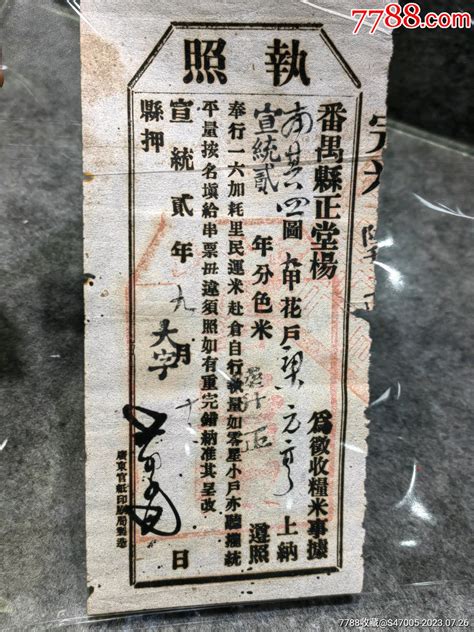 7788.com
執照
番禺縣正堂楊 為徵收糧米事據
四圖九甲花戶 上納
宣統貳年分色米 正 遵照
奉行一六加耗里民運米赴倉自行執量如零星小戶亦聽攏統
平量按名填給串票毋違須照如有重完錯納准其呈改
宣統貳年九月十 日
大字
縣押
廣東官紙印刷局製造
7788收藏@S47005-2023.07.26